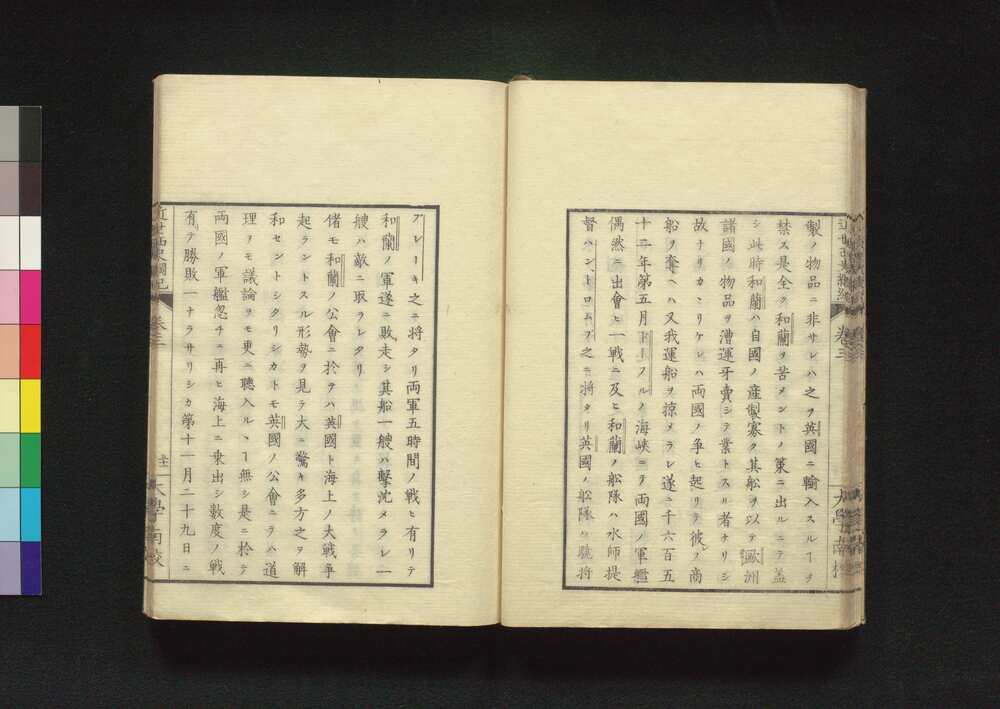 製ノ物品ニ非サレハ之ヲ英國ニ輸入スルヿヲ
禁ス是全ク和蘭ヲ苦メントノ策ニ出ルニテ蓋
シ此時和蘭ハ自國ノ産製寡ク其船ヲ以テ歐洲
諸國ノ物品ヲ漕運牙賣シテ業トスル者ナリシ
故ナリカヽリケレハ両國ノ争ヒ起リテ彼レノ商
船ヲ奪ヘハ又我運船ヲ掠メラレ遂ニ千六百五
十二年第五月ドーフルノ海峡ニテ両國ノ軍艦
偶然ニ出會ヒ一戦ニ及ヒ和蘭ノ舩隊ハ水師提
督ハントロムプ之ニ将タリ英國ノ舩隊ハ驍将
近世西史綱紀 卷三 大學南校
ブレーキ之ニ将タリ両軍五時間ノ戦ヒ有リテ
和蘭ノ軍遂ニ敗走シ其船一艘ハ擊沈メラレ一
艘ハ敵ニ取ラレタリ
偖モ和蘭ノ公會ニ於テハ英國ト海上ノ大戦争
起ラントスル形勢ヲ見テ大ニ驚キ多方之ヲ解
和セントシタリシカトモ英國ノ公會ニテハ道
理ヲモ議論ヲモ更ニ聽入ルヽヿ無シ是ニ於テ
両國ノ軍艦忽チニ再ヒ海上ニ乗出シ數度ノ戦
有リテ勝敗一ナラサリシカ第十一月二十九日ニ
近世西史綱紀 卷三 大學南校